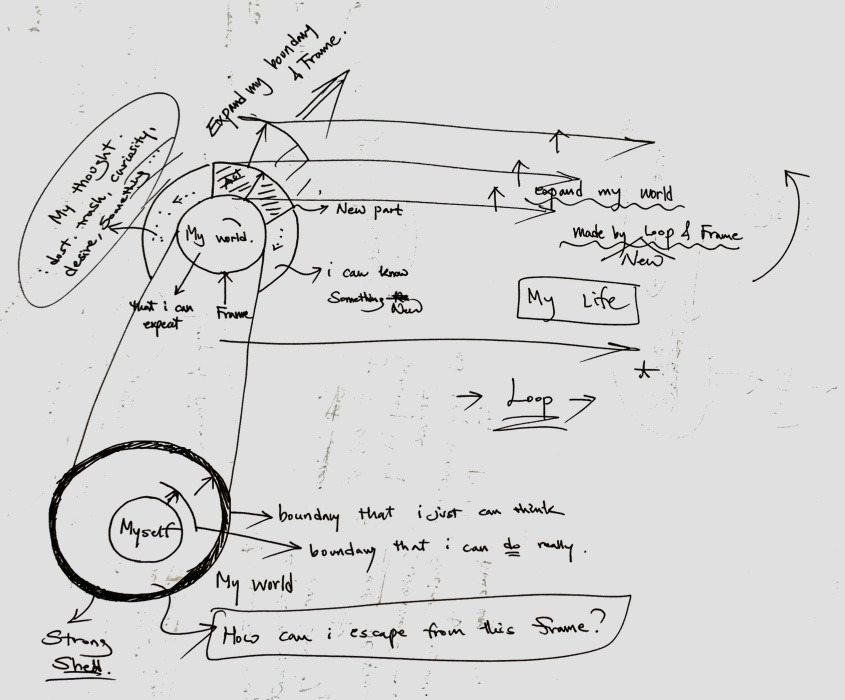 Expand my boundary
& Frame.
My thought.
: dust. trash, curiosity,
desire, Something
Act
F..
My world.
F..
New part
i can know
Something
New
that i can
expect
Frame
expand my world
made by Loop & Frame
New
My Life
t
→ Loop →
Myself
boundary that i just can think
boundary that i can do really.
My world
How can i escape from this frame?
Strong
Shell.